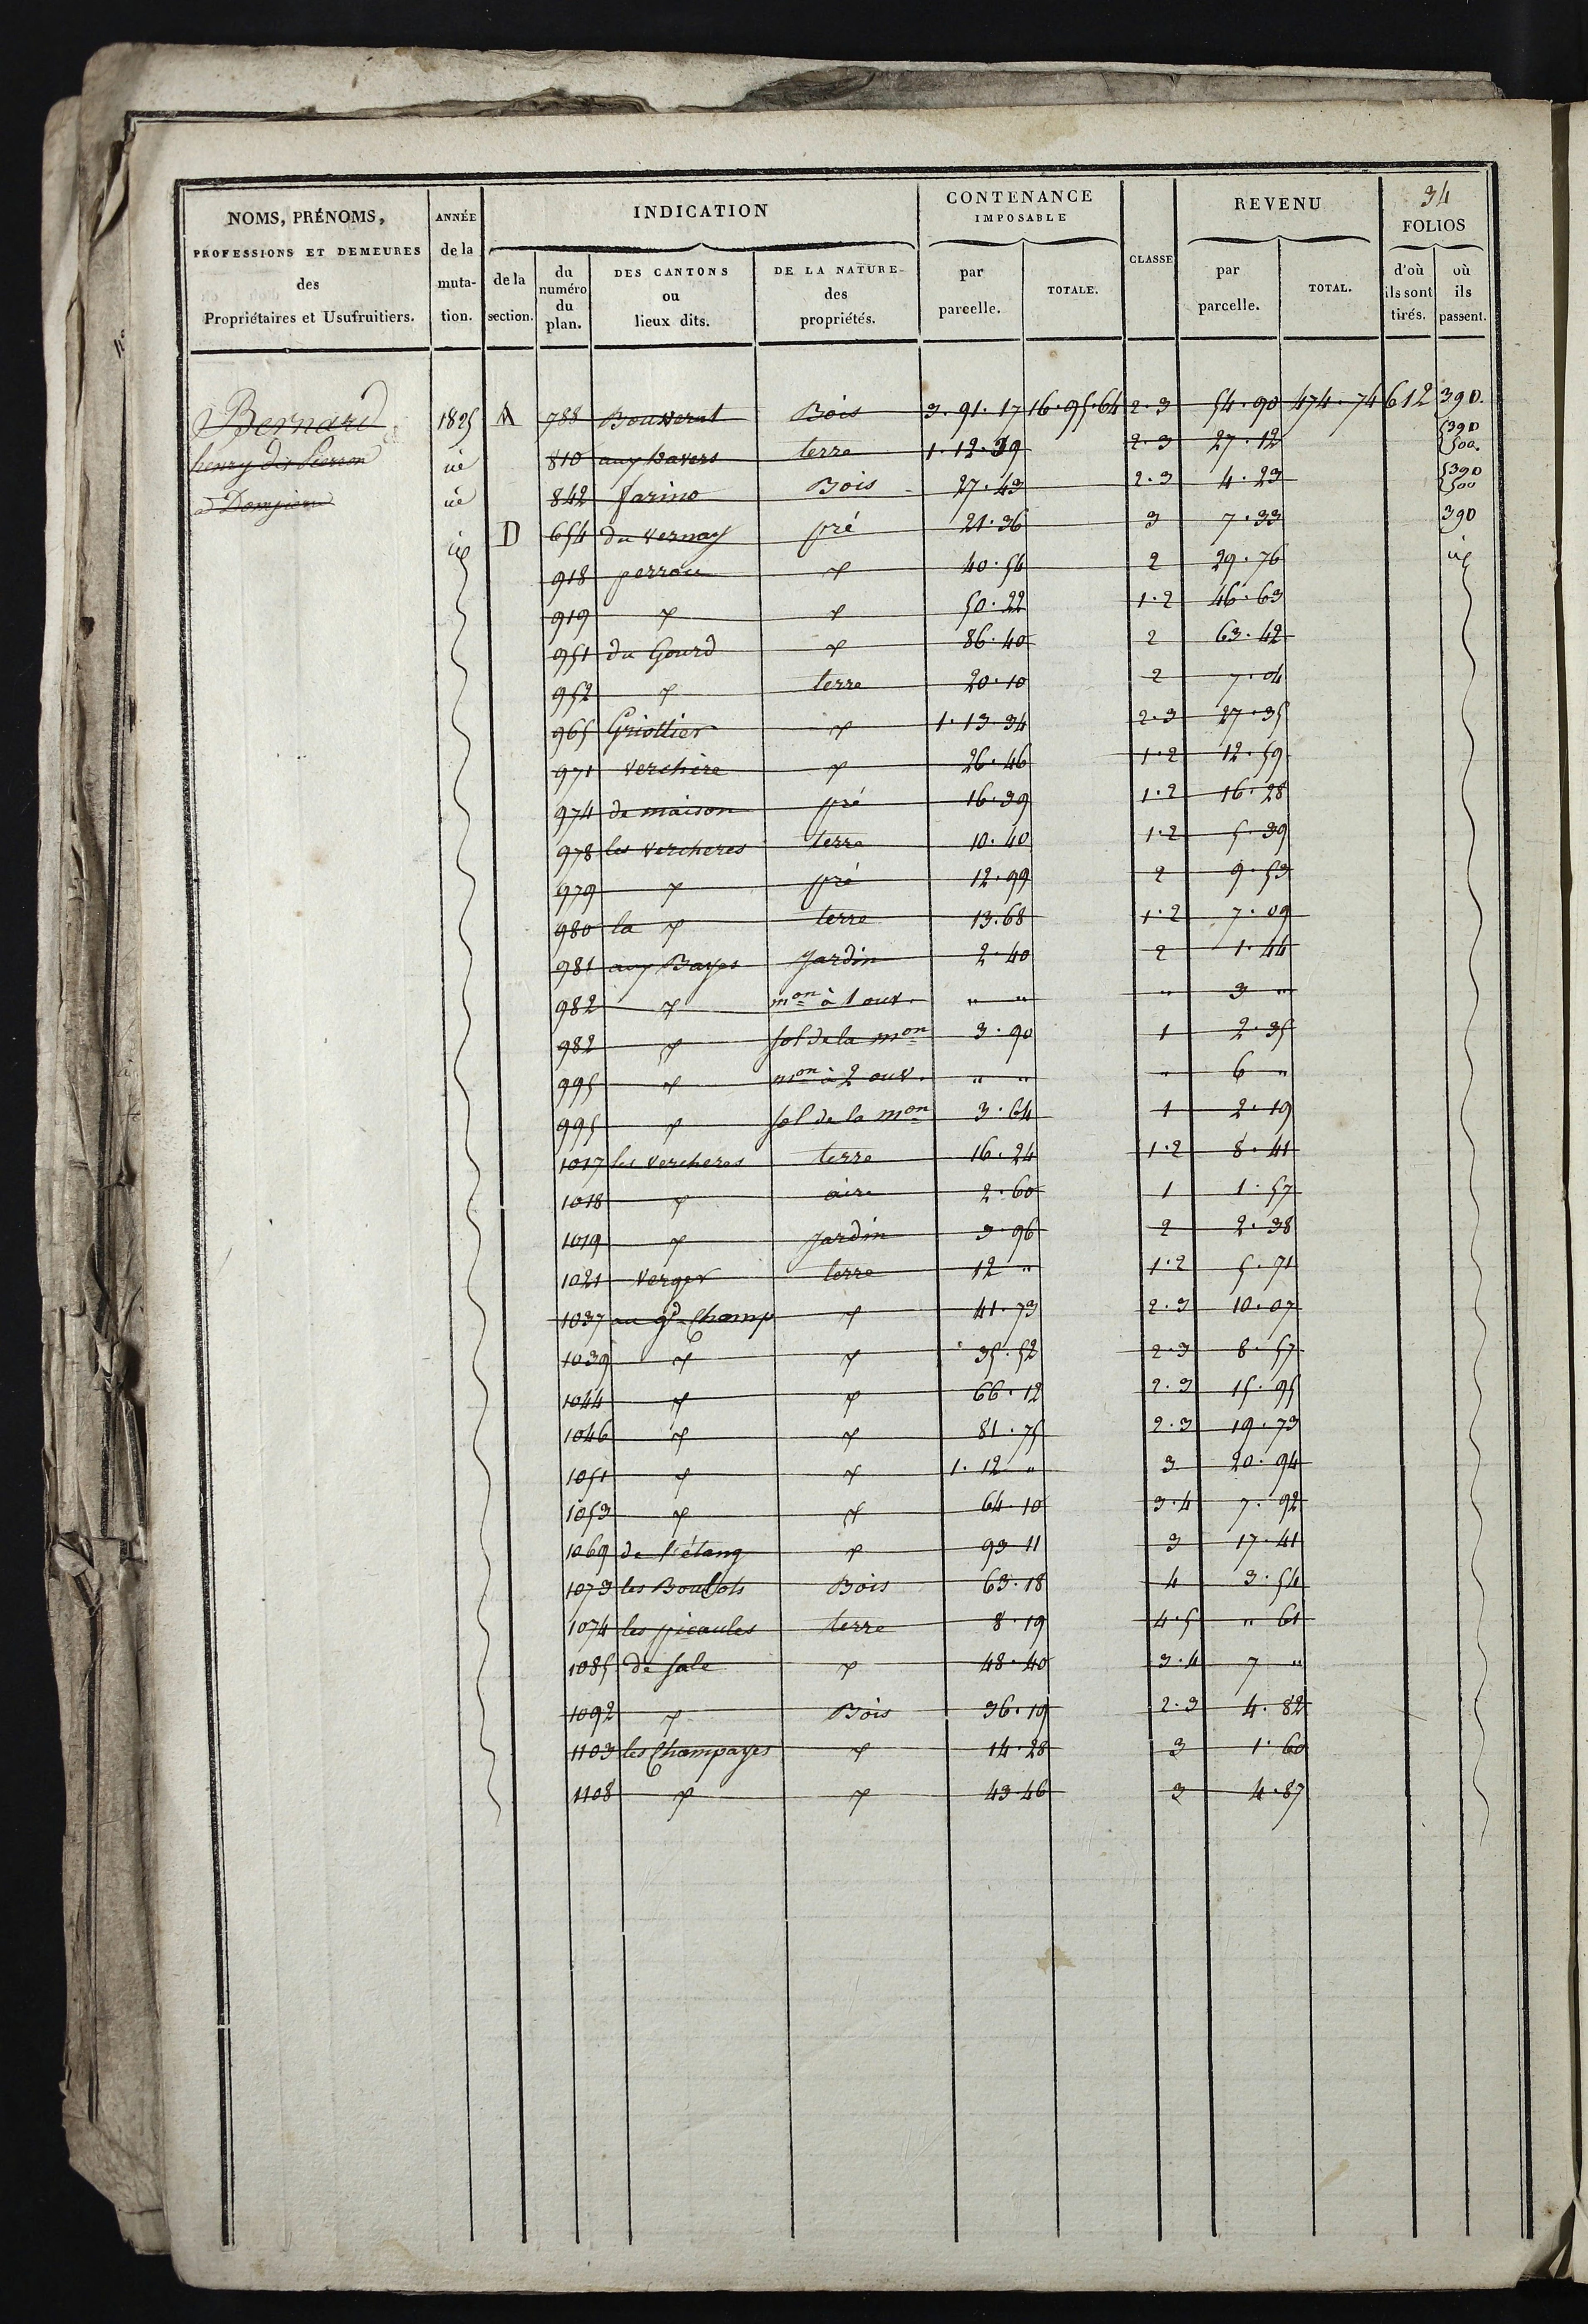 34
NOMS, PRÉNOMS, PROFESSIONS ET DEMEURES des Propriétaires et Usufruitiers.
ANNÉE de la mutation.
INDICATION
de la section.
du numéro du plan.
DES CANTONS ou lieux dits.
DE LA NATURE des propriétés.
CONTENANCE IMPOSABLE
par parcelle.
TOTALE.
CLASSE
REVENU
par parcelle.
TOTAL.
FOLIOS
d'où ils sont tirés.
où ils passent.
Bernard 1825 A 788 Bouverat Bois 3.91.17 16.95.64 2.3 54.90 474.74 612 390.
henry dit Pierron 810 aux Bavers terre 1.12.39 2.3 27.12 390 500.
à Dompierre 842 farino Bois 27.43 2.3 4.23 390 500
D 654 du vernay pré 21.36 3 7.33 390
918 perrou 〃 40.54 2 29.76
919 〃 〃 50.22 1.2 46.63
951 du Gourd 〃 86.40 2 63.42
952 〃 terre 20.10 2 7.04
965 Griottier 〃 1.13.34 2.3 27.35
971 verchère 〃 26.46 1.2 12.59
974 de maison pré 16.39 1.2 16.28
978 les vercheres terre 10.40 1.2 5.39
979 〃 pré 12.99 2 9.53
980 la 〃 terre 13.68 1.2 7.09
981 aux Bayes Jardin 2.40 2 1.44
982 〃 mon à 1 ouv. " " " 3 "
982 〃 sol de la mon 3.90 1 2.35
995 〃 mon à 2 ouv. " " " 6 "
995 〃 sol de la mon 3.64 1 2.19
1017 les vercheres terre 16.24 1.2 8.41
1018 〃 aire 2.60 1 1.57
1019 〃 Jardin 3.96 2 2.38
1021 verger terre 12 " 1.2 5.71
1037 au gd Champ 〃 41.73 2.3 10.07
1039 〃 〃 35.52 2.3 8.57
1044 〃 〃 66.12 2.3 15.95
1046 〃 〃 81.75 2.3 19.73
1051 〃 〃 1.12 " 3 20.94
1053 〃 〃 64.10 3.4 7.92
1069 de l'étang 〃 93 11 3 17.41
1073 les Boulots Bois 63.18 4 3.54
1074 les picaules terre 8.19 4.5 " 61
1085 de sale 〃 48.40 3.4 7 "
1092 〃 Bois 36.19 2.3 4.82
1103 les Champayes 〃 14.28 3 1.60
1108 〃 〃 43 46 3 4.87